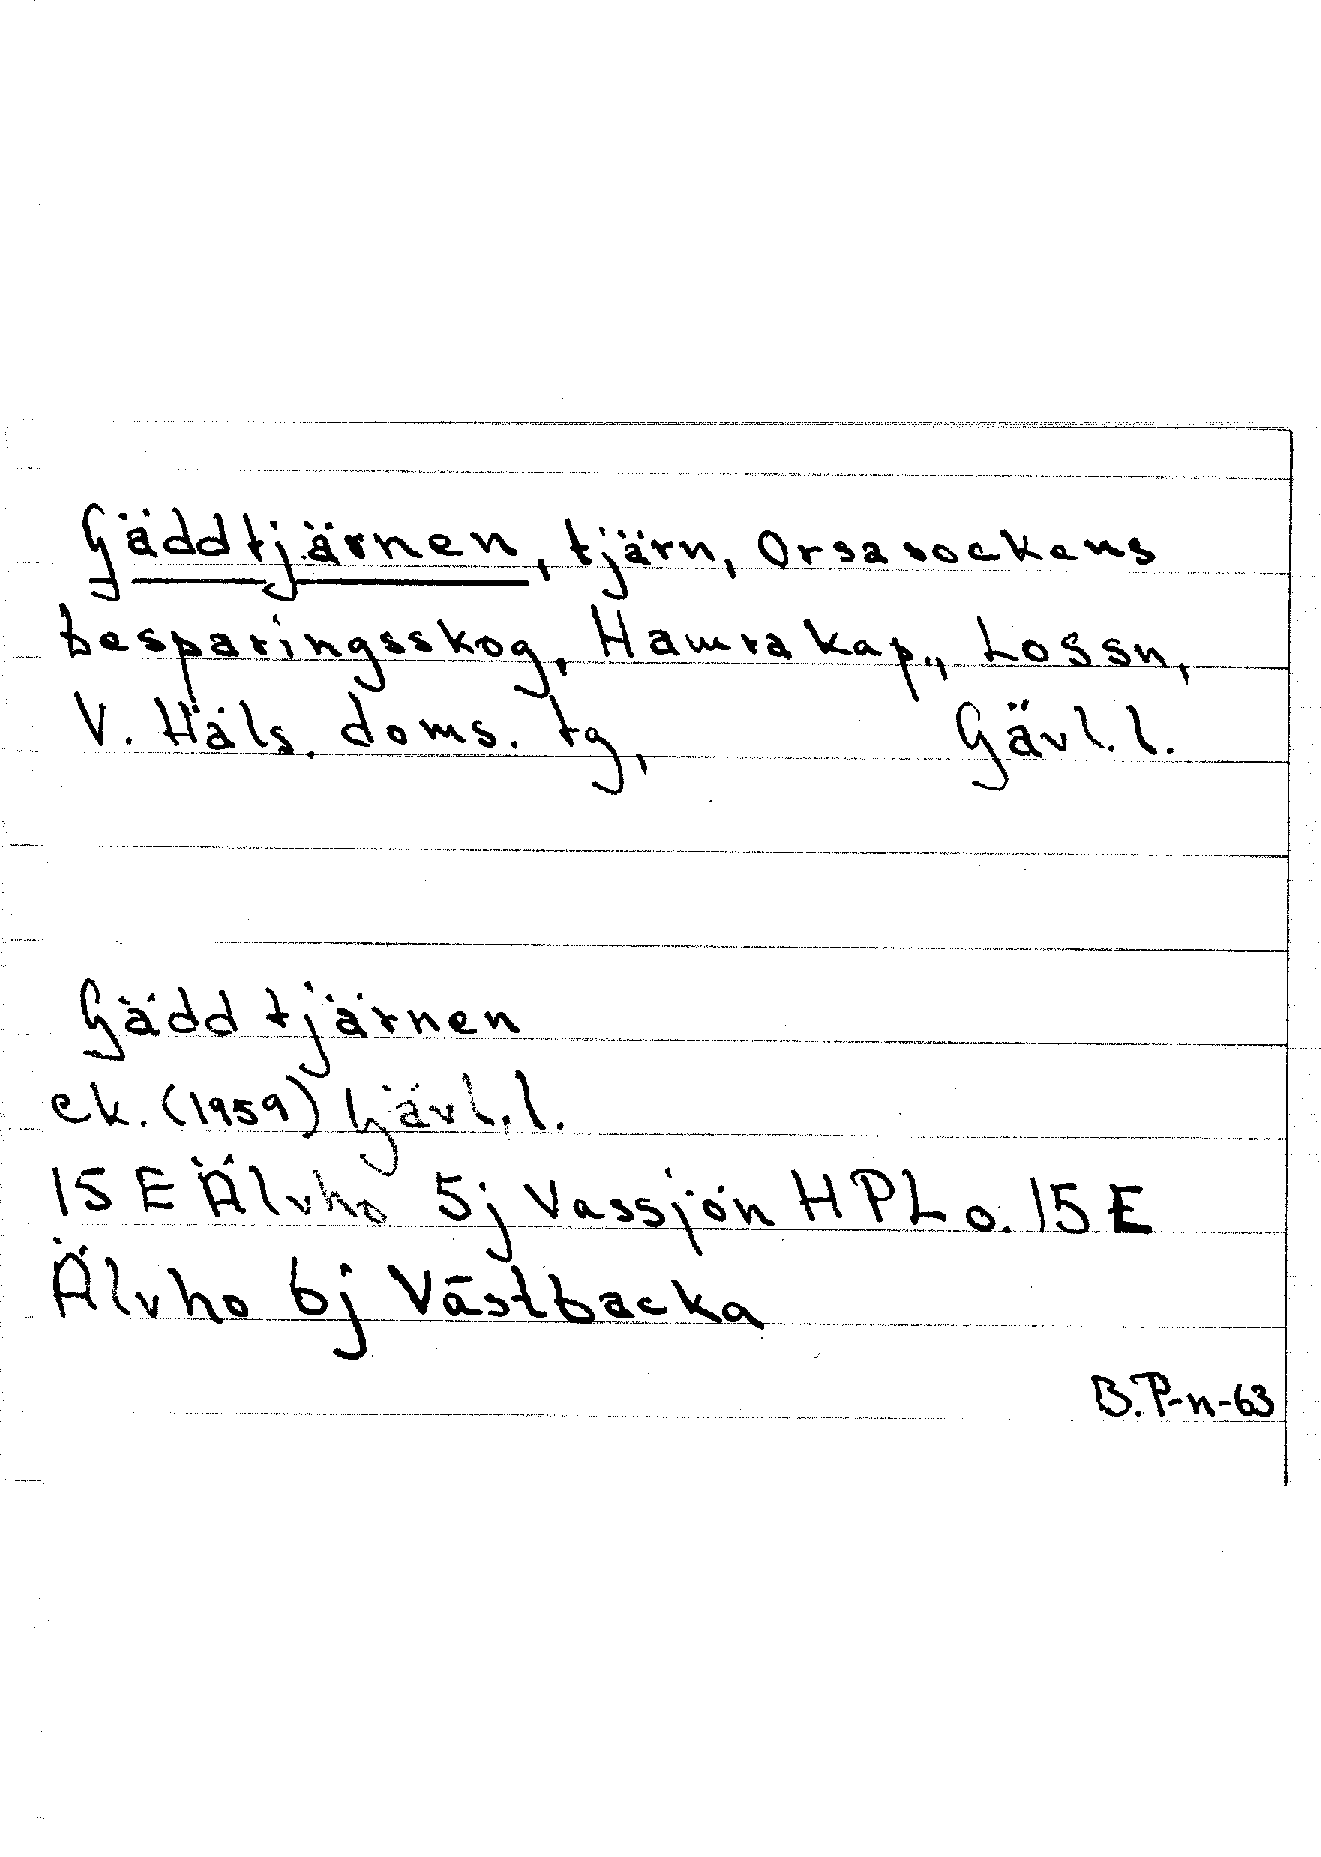 Gäddtjärnen, tjärn, Orsasockens
besparingsskog, Hamra kap., Lossn,
V. Häls. doms. tg, Gävl. l.
Gäddtjärnen
ek. (1959) Gävl. l.
15 E Älvho 5j Vassjön HPL o. 15 E
Älvho 6j Västbacka
B.P-n-63